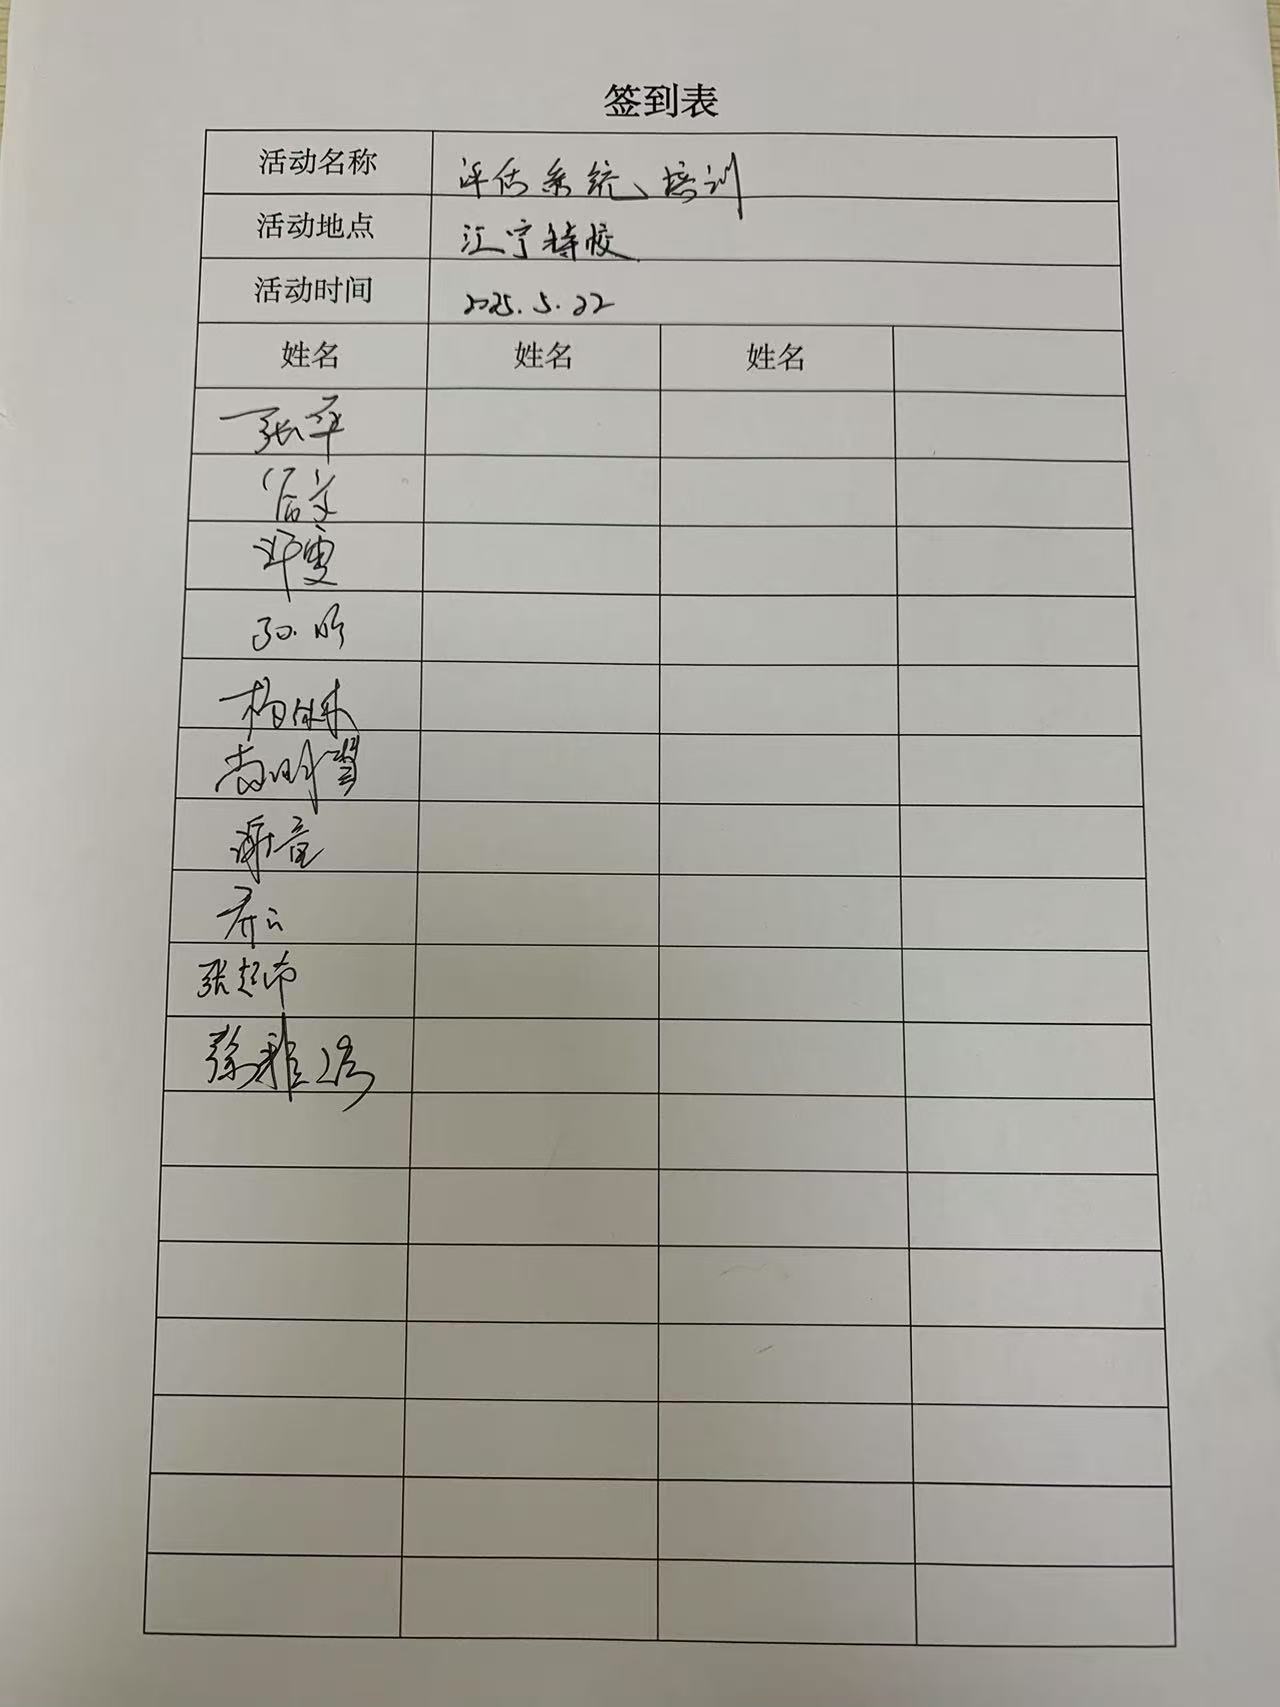 签到表
活动名称 评估系统、培训
活动地点 江宁特校
活动时间 2025.5.22
姓名 姓名 姓名
张平
许雯
孙昕
杨
尚明
谢童
乔云
张超
徐雅